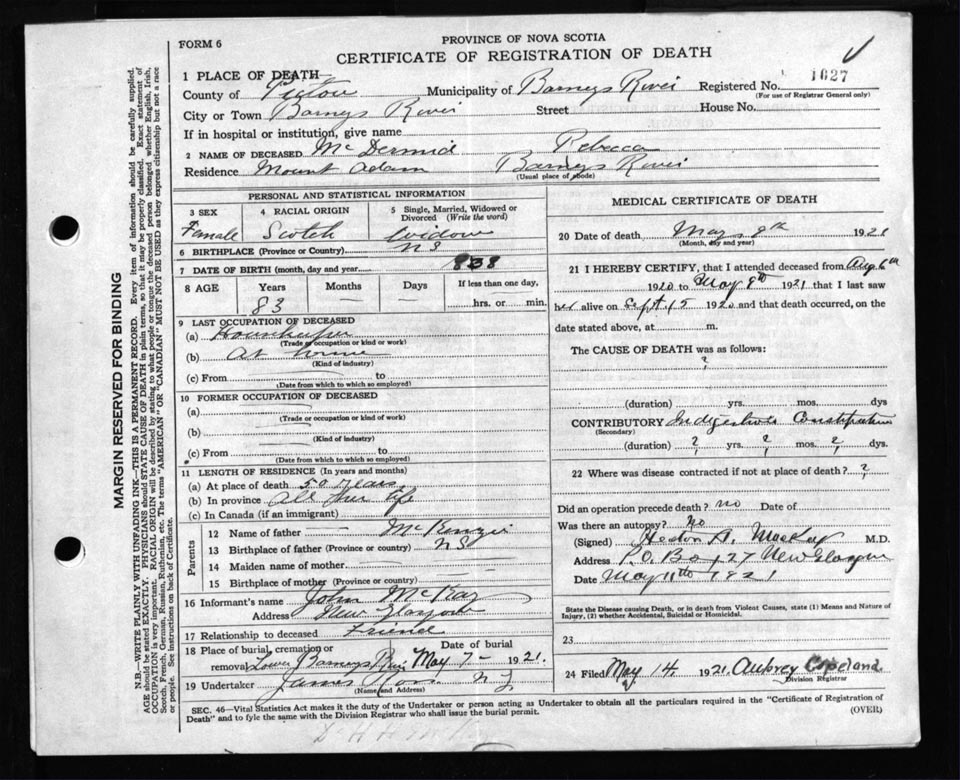 FORM 6
PROVINCE OF NOVA SCOTIA
CERTIFICATE OF REGISTRATION OF DEATH
1 PLACE OF DEATH
1627
County of Pictou Municipality of Barneys River Registered No.
(For use of Registrar General only)
City or Town Barneys River Street House No.
If in hospital or institution, give name
2 NAME OF DECEASED McDermid Rebecca
Residence Mount Adam Barneys River
(Usual place of abode)
PERSONAL AND STATISTICAL INFORMATION
3 SEX
Female
4 RACIAL ORIGIN
Scotch
5 Single, Married, Widowed or
Divorced (Write the word)
Widow
6 BIRTHPLACE (Province or Country) NS
7 DATE OF BIRTH (month, day and year) 1838
8 AGE Years Months Days If less than one day,
83 — — hrs. or min.
9 LAST OCCUPATION OF DECEASED
(a) Housekeeper
(Trade or occupation or kind or work)
(b) At home
(Kind of industry)
(c) From to
(Date from which to which so employed)
10 FORMER OCCUPATION OF DECEASED
(a)
(Trade or occupation or kind of work)
(b)
(Kind of industry)
(c) From to
(Date from which to which so employed)
11 LENGTH OF RESIDENCE (In years and months)
(a) At place of death 50 years
(b) In province All her life
(c) In Canada (if an immigrant)
Parents
12 Name of father — McKenzie
13 Birthplace of father (Province or country) NS
14 Maiden name of mother
15 Birthplace of mother (Province or country)
16 Informant's name John McKay
Address New Glasgow
17 Relationship to deceased Friend
18 Place of burial, cremation or Date of burial
removal Lower Barneys River May 7 - 1921.
19 Undertaker James Ross N G
(Name and Address)
MEDICAL CERTIFICATE OF DEATH
20 Date of death May 8th 1921
(Month, day and year)
21 I HEREBY CERTIFY, that I attended deceased from Aug 6th
1920 to May 8th 1921 that I last saw
her alive on Sept 15 1920 and that death occurred, on the
date stated above, at m.
The CAUSE OF DEATH was as follows:
?
(duration) yrs. mos. days
CONTRIBUTORY Indigestion Constipation
(Secondary)
(duration) ? yrs. ? mos. ? dys.
22 Where was disease contracted if not at place of death? ?
Did an operation precede death? no Date of
Was there an autopsy? No
(Signed) A. MacKay M.D.
Address P.O. Box 27 New Glasgow
Date May 11th 1921
State the Disease causing Death, or in death from Violent Causes, state (1) Means and Nature of
Injury, (2) whether Accidental, Suicidal or Homicidal.
23
24 Filed May 14 1921. Aubrey Copeland
Division Registrar
SEC. 46—Vital Statistics Act makes it the duty of the Undertaker or person acting as Undertaker to obtain all the particulars required in the "Certificate of Registration of
Death" and to fyle the same with the Division Registrar who shall issue the burial permit.
(OVER)
MARGIN RESERVED FOR BINDING
N.B.—WRITE PLAINLY WITH UNFADING INK—THIS IS A PERMANENT RECORD. Every item of information should be carefully supplied.
AGE should be stated EXACTLY. PHYSICIANS should STATE CAUSE OF DEATH in plain terms, so that it may be properly classified. Exact statement of
OCCUPATION is very important. RACIAL ORIGIN will be described by stating to what people or tongue the deceased person belonged whether English, Irish,
Scotch, French, German, Russian, Ruthenian, etc. The terms "AMERICAN" OR "CANADIAN" MUST NOT BE USED as they express citizenship but not a race
or people. See instructions on back of Certificate.